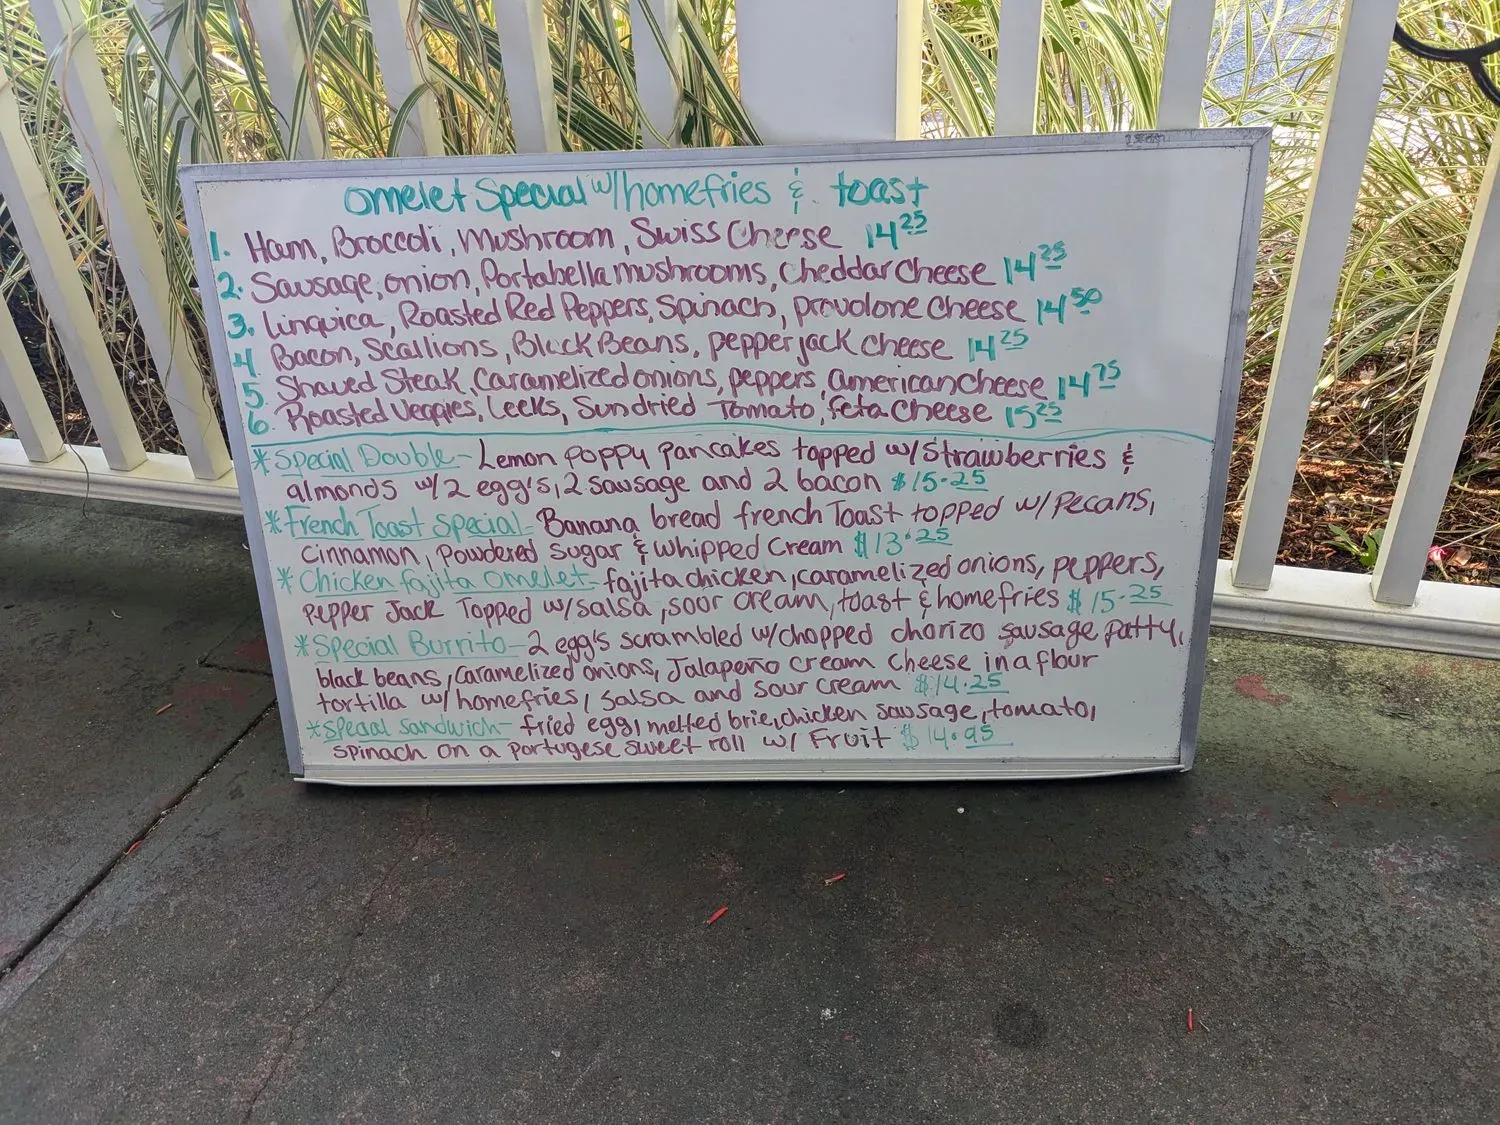 Omelet Special w/homefries & toast
1. Ham, Broccoli, Mushroom, Swiss Cheese 14 25
2. Sausage, onion, Portabella mushrooms, Cheddar Cheese 14 25
3. Linquica, Roasted Red Peppers, Spinach, provolone Cheese 14 50
4 Bacon, Scallions, Black Beans, pepper jack cheese 14 25
5. Shaved Steak, Caramelized onions, peppers, american cheese 14 75
6. Roasted Veggies, Leeks, Sundried Tomato, feta Cheese 15 25
*Special Double- Lemon poppy pancakes topped w/Strawberries &
almonds w/2 egg's, 2 sausage and 2 bacon $15.25
*French Toast Special- Banana bread french Toast topped w/Pecans,
Cinnamon, Powdered Sugar & Whipped Cream $13.25
*Chicken fajita omelet- fajita chicken, caramelized onions, peppers,
Pepper Jack Topped w/salsa, soor cream, toast & homefries $15.25
*Special Burrito- 2 egg's scrambled w/chopped chorizo sausage patty,
black beans, Caramelized onions, Jalapeño cream cheese in a flour
tortilla w/homefries, salsa and sour cream $14.25
*Special Sandwich- fried egg, melted brie, chicken sausage, tomato,
spinach on a portugese sweet roll w/ Fruit $14.95